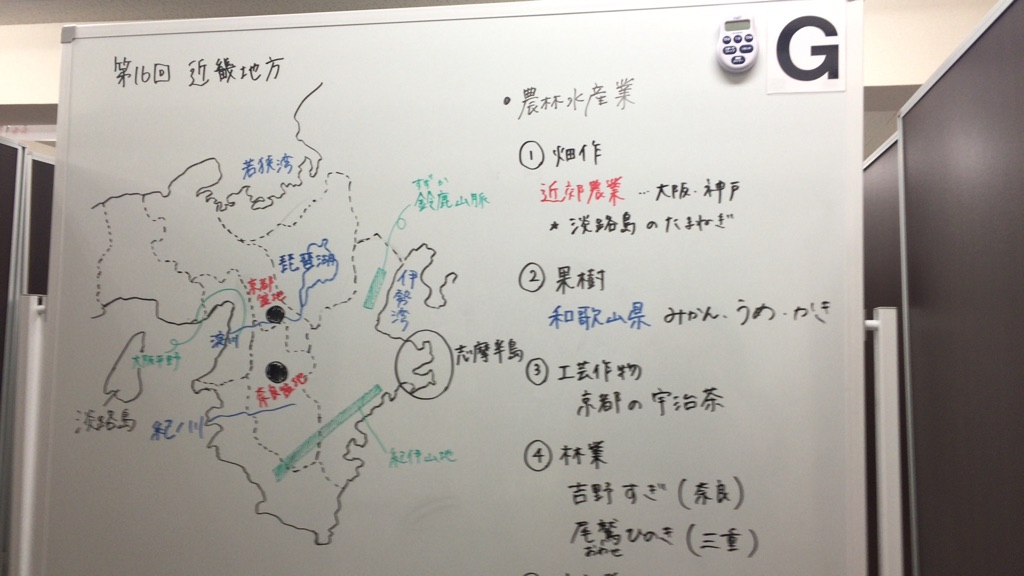 第16回 近畿地方
G
若狭湾
すずか
鈴鹿山脈
琵琶湖
京都
盆地
伊勢湾
淀川
大阪平野
志摩半島
奈良盆地
淡路島
紀ノ川
紀伊山地
・農林水産業
① 畑作
近郊農業…大阪・神戸
* 淡路島のたまねぎ
② 果樹
和歌山県 みかん・うめ・かき
③ 工芸作物
京都の宇治茶
④ 林業
吉野すぎ(奈良)
尾鷲ひのき(三重)
おわせ